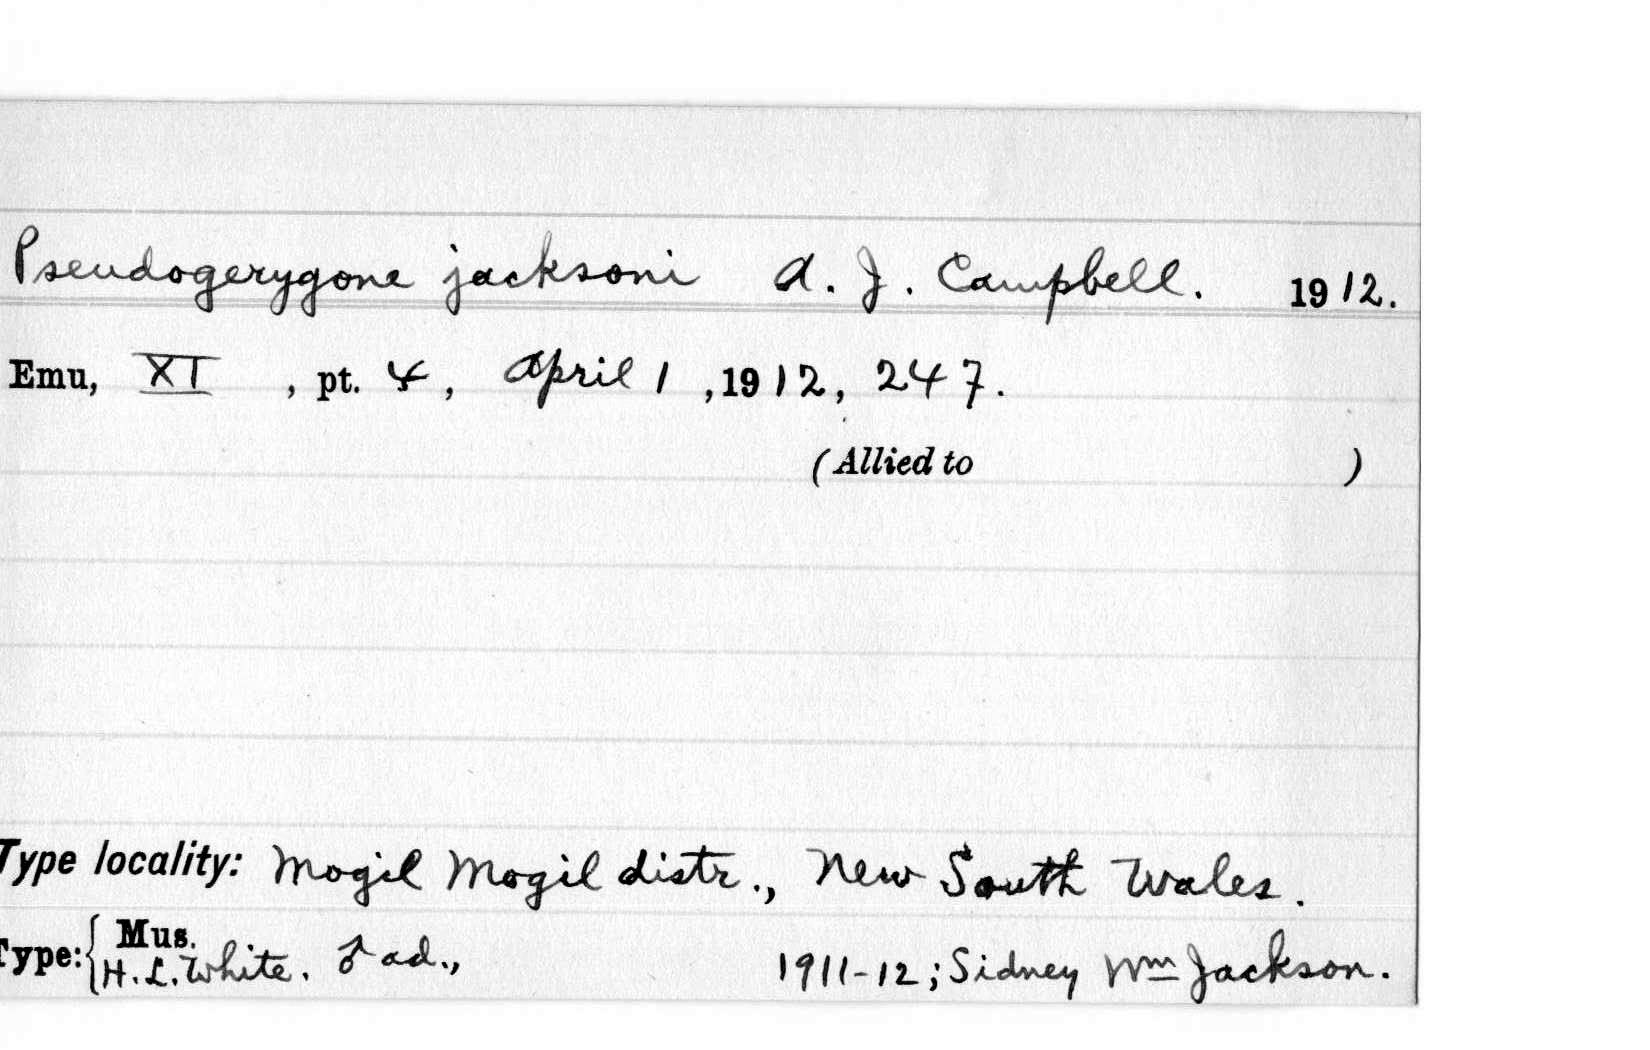 Pseudogerygone jacksoni A. J. Campbell. 1912.
Emu, XI, pt. 4, April 1, 1912, 247.
(Allied to )
Type locality: Mogil Mogil distr., New South Wales.
Type: { Mus.
H. L. White. ♂ ad., 1911-12; Sidney Wm Jackson.